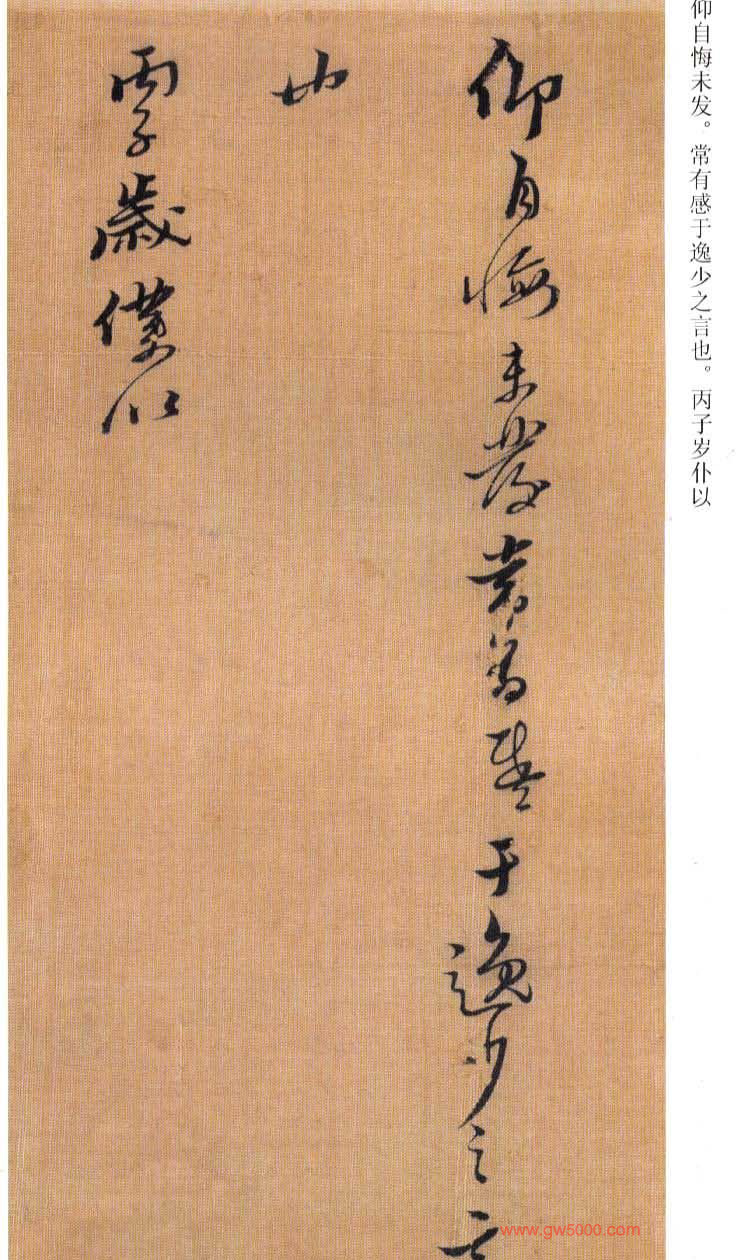 仰自悔未发。常有感于逸少之言也。丙子岁仆以
仰自悔未發常有感于逸少之言
也
丙子歲僕以
www.gw5000.com